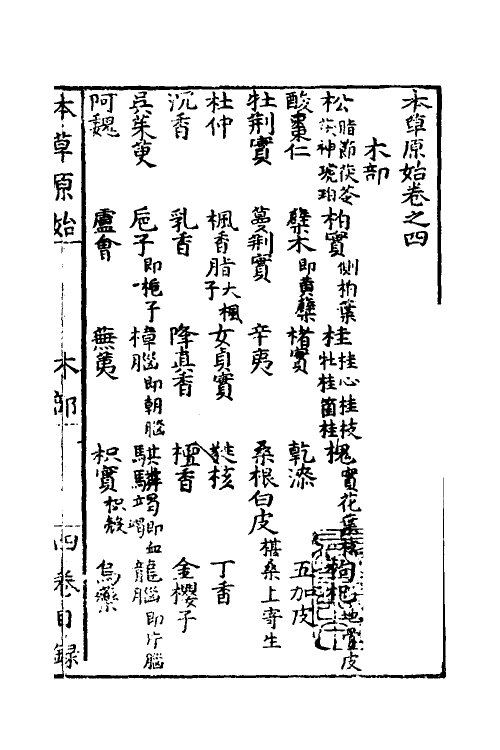 本草原始卷之四
木部
松 脂節茯苓茯神琥珀 柏實 側柏葉 桂 桂心桂枝牡桂箘桂 槐 實花葉 枸杞 地骨皮
酸棗仁 蘗木 即黃蘗 楮實 乾漆 五加皮
牡荊實 蔓荊實 辛夷 桑根白皮 椹桑上寄生
杜仲 楓香脂 大楓子 女貞實 蕤核 丁香
沉香 乳香 降真香 檀香 金櫻子
吳茱萸 巵子 即梔子 樟腦 即朝腦 騏驎竭 即血竭 龍腦 即片腦
阿魏 盧會 蕪荑 枳實 枳殼 烏藥
本草原始 木部 四卷目錄